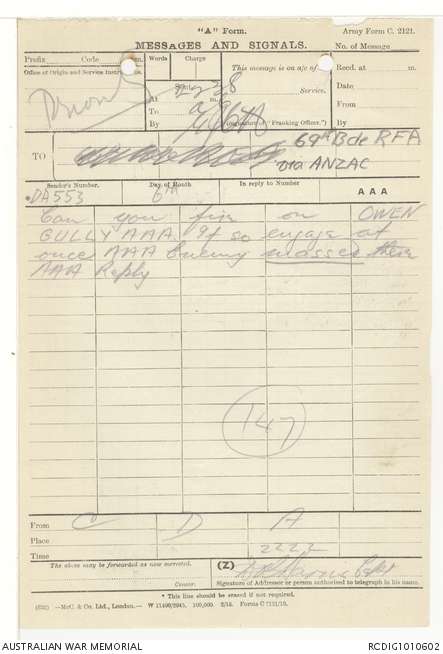 "A" Form.
Army Form C. 2121.
MESSAGES AND SIGNALS.
No. of Message
Prefix Code m.
Words
Charge
This message is on a/c of
Recd. at m.
Office of Origin and Service Instructions.
Sent
Service.
Date
Priority
At m.
From
To
By
(Signature of "Franking Officer.")
By
TO
69th Bde RFA
via ANZAC
Sender's Number.
Day of Month
In reply to Number
AAA
DA553
6th
Can you fire on OWEN
GULLY AAA If so engage at
once AAA Enemy massed there
AAA Reply
147
From C D A
Place
Time 2223
The above may be forwarded as now corrected.
(Z)
Capt
Censor.
Signature of Addressor or person authorised to telegraph in his name.
* This line should be erased if not required.
—McC. & Co. Ltd., London.— W 11400/2045. 100,000. 2/15. Forms C 2121/10.
AUSTRALIAN WAR MEMORIAL
RCDIG1010602